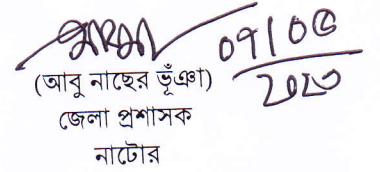 ০৭/০৫
২০২৩
(আবু নাছের ভূঁঞা)
জেলা প্রশাসক
নাটোর